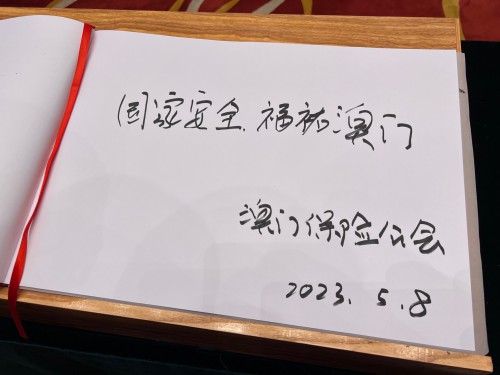 国家安全.福祐澳门
澳门保险公会
2023.5.8